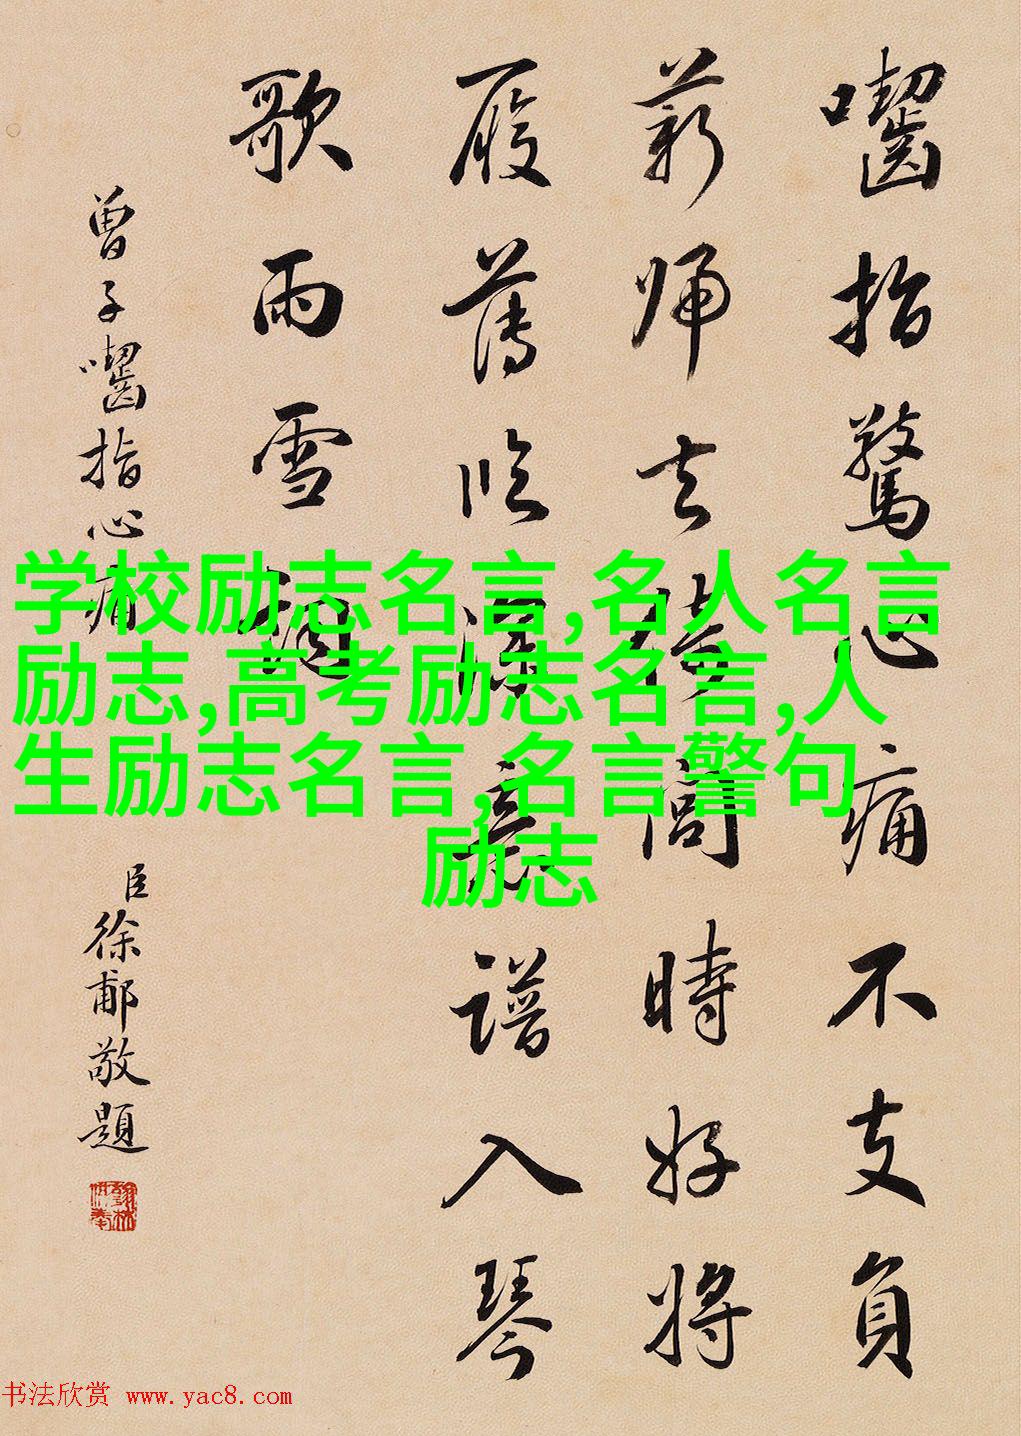 囓指驚心痛不支負
薪歸去倚閭時好將
履薄臨深意譜入琴
歌雨雪詞
曾子囓指心痛
臣徐郙敬題
学校励志名言,名人名言
励志,高考励志名言,人
生励志名言,名言警句
励志
书法欣赏 www.yac8.com